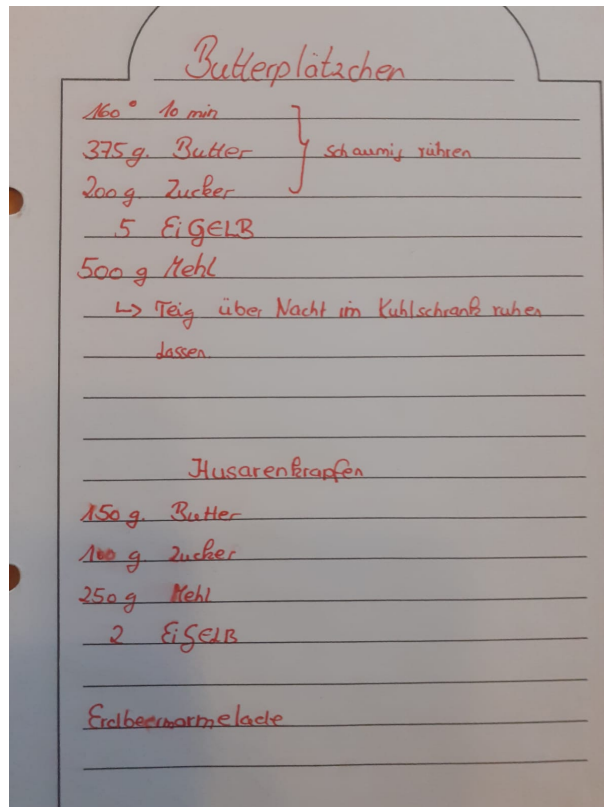 Butterplätzchen
160° 10 min
375 g. Butter } schaumig rühren
200 g. Zucker
5 EiGELB
500 g Mehl
↳ Teig über Nacht im Kühlschrank ruhen
lassen.
Husarenkrapfen
150 g. Butter
100 g Zucker
250 g Mehl
2 EiGELB
Erdbeermarmelade